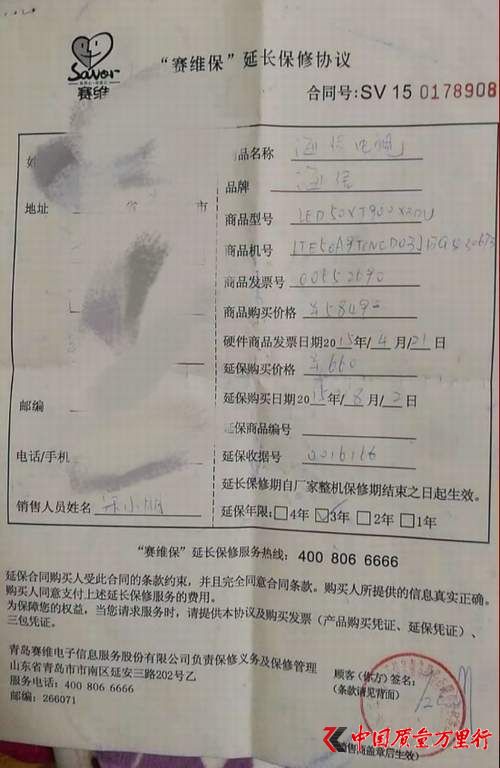 Savor
赛维
“赛维保”延长保修协议
合同号:SV 15 0178908
商品名称 海信电视
地址 省 市
品牌 海信
商品型号 LED50XT900X3DU
商品机号
商品发票号 00552690
商品购买价格
硬件商品发票日期2015年/4月/21日
延保购买价格 ¥660
邮编
延保购买日期2015年/8月/2日
延保商品编号
电话/手机
延保收据号 0016166
延长保修期自厂家整机保修期结束之日起生效。
销售人员姓名 宋小丽
延保年限:□4年 ☑3年 □2年 □1年
“赛维保”延长保修服务热线: 400 806 6666
延保合同购买人受此合同的条款约束，并且完全同意合同条款。购买人所提供的信息真实正确。
购买人同意支付上述延长保修服务的费用。
为保障您的权益，当您请求服务时，请提供本协议及购买发票（产品购买凭证、延保凭证）、
三包凭证。
青岛赛维电子信息服务股份有限公司负责保修义务及保修管理
山东省青岛市市南区延安三路202号乙
服务电话: 400 806 6666
邮编: 266071
顾客（你方）签名:
（条款请见背面）
中国质量万里行
（销售商盖章后生效）